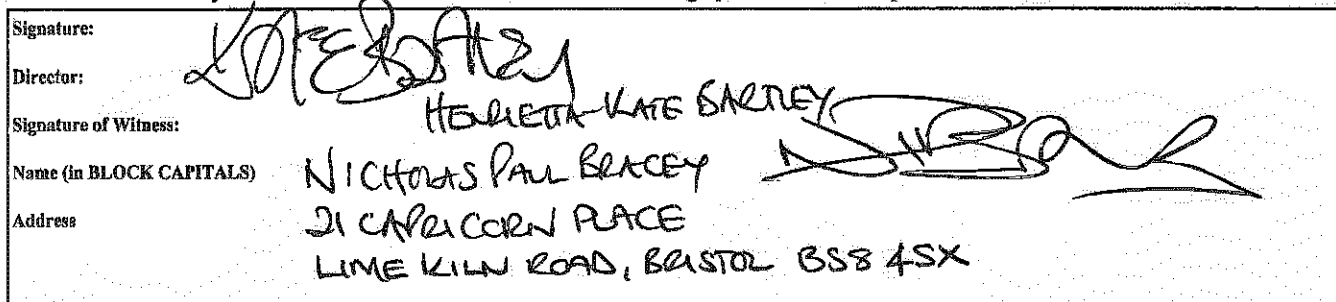 Signature:
Director:
HENRIETTA-KATE BARTLEY
Signature of Witness:
Name (in BLOCK CAPITALS) NICHOLAS PAUL BRACEY
Address 21 CAPRICORN PLACE
LIME KILN ROAD, BRISTOL BS8 4SX